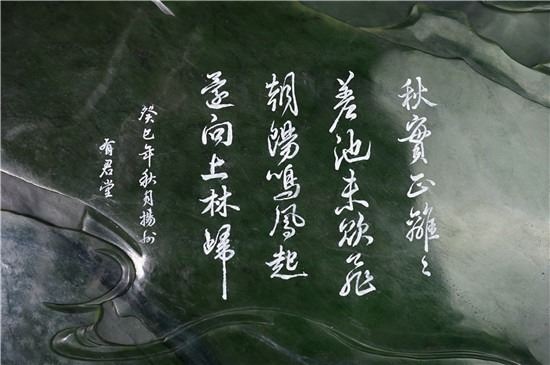 秋實正離々
差池未欲飛
朝陽鳴鳳起
遂向上林歸
癸巳年秋月揚州
有君堂